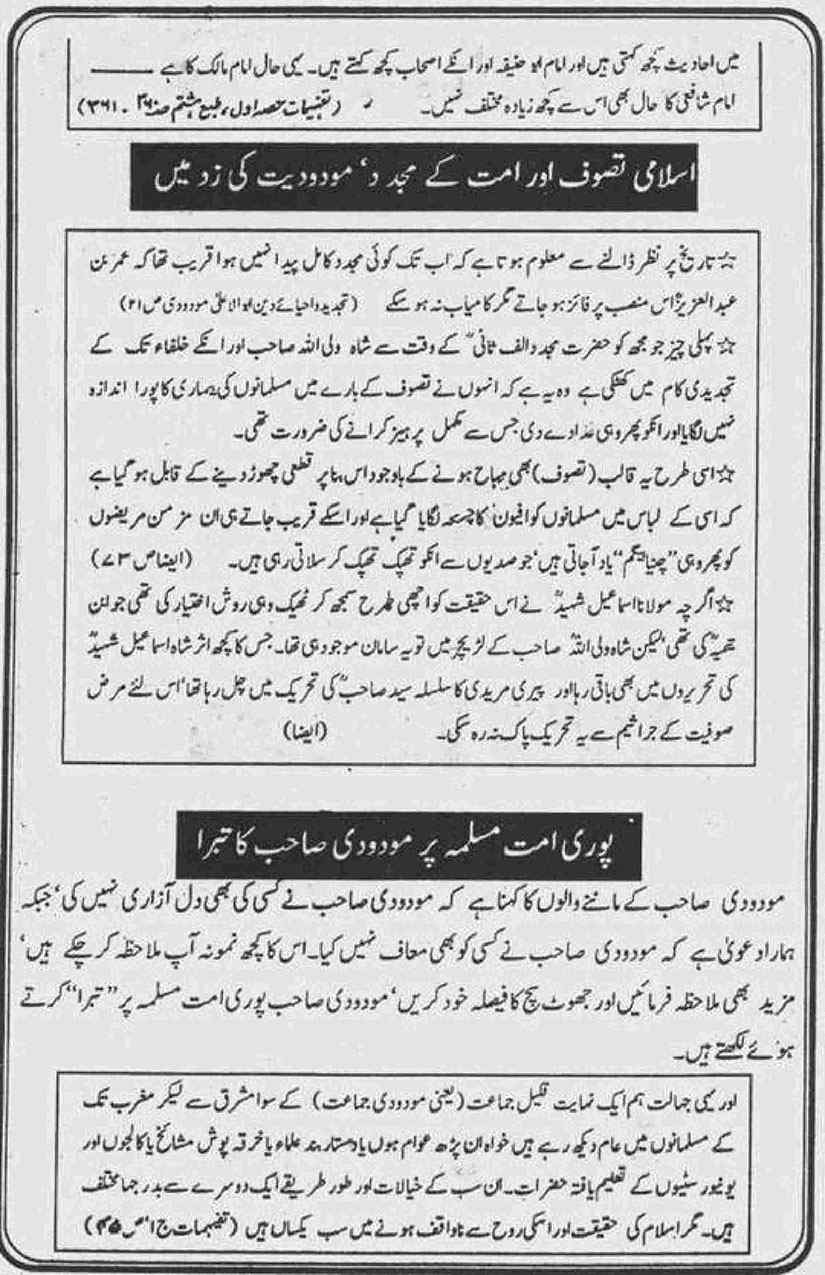 میں احادیث کچھ کہتی ہیں اور امام ابو حنیفہ اور انکے اصحاب کچھ کہتے ہیں۔ یہی حال امام مالک کا ہے ———
امام شافعی کا حال بھی اس سے کچھ زیادہ مختلف نہیں۔ (تفہیمات حصہ اول، طبع ہشتم صہ ۳۶۰۔۳۶۱)
اسلامی تصوف اور امت کے مجدد، مودودیت کی زد میں
☆ تاریخ پر نظر ڈالنے سے معلوم ہوتا ہے کہ اب تک کوئی مجدد کامل پیدا نہیں ہوا قریب تھا کہ عمر بن
عبد العزیزؒ اس منصب پر فائز ہو جاتے مگر کامیاب نہ ہو سکے (تجدید و احیائے دین ابوالاعلیٰ مودودی ص ۲۱)
☆ پہلی چیز جو مجھ کو حضرت مجدد الف ثانیؒ کے وقت سے شاہ ولی اللہ صاحب اور انکے خلفاء تک کے
تجدیدی کام میں کھٹکی ہے وہ یہ ہے کہ انہوں نے تصوف کے بارے میں مسلمانوں کی بیماری کا پورا اندازہ
نہیں لگایا اور انکو پھر وہی غذا دے دی جس سے مکمل پرہیز کرانے کی ضرورت تھی۔
☆ اسی طرح یہ قالب (تصوف) بھی مباح ہونے کے باوجود اس بنا پر قطعی چھوڑ دینے کے قابل ہو گیا ہے
کہ اسی کے لباس میں مسلمانوں کو افیون کا چسکہ لگایا گیا ہے اور اسکے قریب جاتے ہی ان مزمن مریضوں
کو پھر وہی "چنیا بیگم" یاد آجاتی ہیں، جو صدیوں سے انکو تھپک تھپک کر سلاتی رہی ہیں۔ (ایضا ص ۷۳)
☆ اگرچہ مولانا اسماعیل شہیدؒ نے اس حقیقت کو اچھی طرح سمجھ کر ٹھیک وہی روش اختیار کی تھی جو ابن
تیمیہؒ کی تھی، لیکن شاہ ولی اللہؒ صاحب کے لٹریچر میں تو یہ سامان موجود ہی تھا۔ جس کا کچھ اثر شاہ اسماعیل شہیدؒ
کی تحریروں میں بھی باقی رہا اور پیری مریدی کا سلسلہ سید صاحبؒ کی تحریک میں چل رہا تھا، اس لئے مرض
صوفیت کے جراثیم سے یہ تحریک پاک نہ رہ سکی۔ (ایضا)
پوری امت مسلمہ پر مودودی صاحب کا تبرا
مودودی صاحب کے ماننے والوں کا کہنا ہے کہ مودودی صاحب نے کسی کی بھی دل آزاری نہیں کی، جبکہ
ہمارا دعویٰ ہے کہ مودودی صاحب نے کسی کو بھی معاف نہیں کیا۔ اس کا کچھ نمونہ آپ ملاحظہ کر چکے ہیں،
مزید بھی ملاحظہ فرمائیں اور جھوٹ سچ کا فیصلہ خود کریں، مودودی صاحب پوری امت مسلمہ پر "تبرا" کرتے
ہوئے لکھتے ہیں۔
اور یہی جہالت ہم ایک نہایت قلیل جماعت (یعنی مودودی جماعت) کے سوا مشرق سے لیکر مغرب تک
کے مسلمانوں میں عام دیکھ رہے ہیں خواہ ان پڑھ عوام ہوں یا دستار بند علماء یا خرقہ پوش مشائخ یا کالجوں اور
یونیورسٹیوں کے تعلیم یافتہ حضرات۔ ان سب کے خیالات اور طور طریقے ایک دوسرے سے بدرجہا مختلف
ہیں۔ مگر اسلام کی حقیقت اور اسکی روح سے ناواقف ہونے میں سب یکساں ہیں (تفہیمات ج ۱، ص ۴۵)